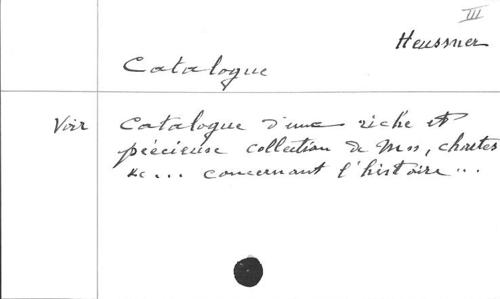 III
Heussner
Catalogue
Voir Catalogue d'une riche et
précieuse collection de Mss, chartes
&c ... concernant l'histoire ...